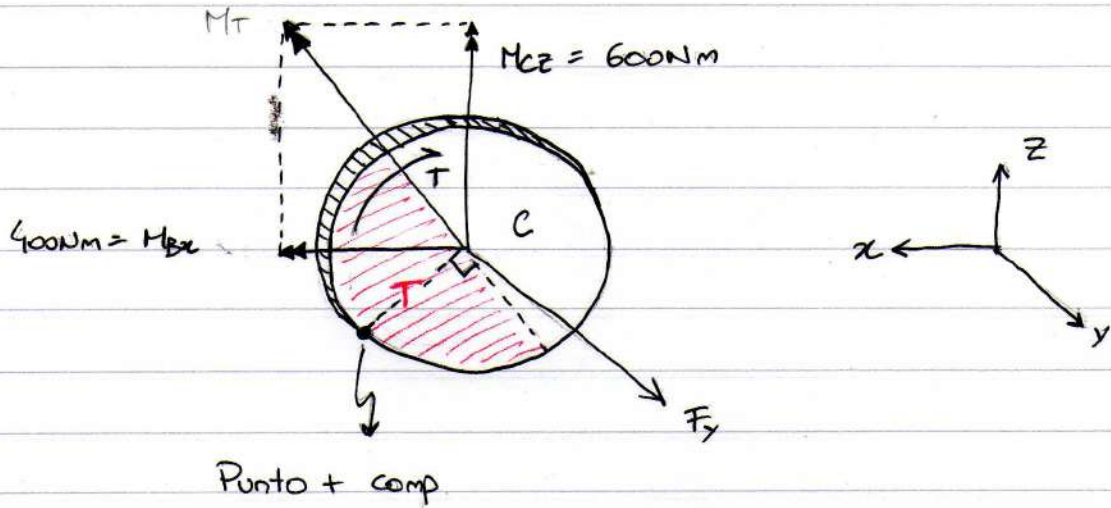 MT
MCZ = 600Nm
Z
T
C
400Nm = MBx
x
T
y
Fy
Punto + comp